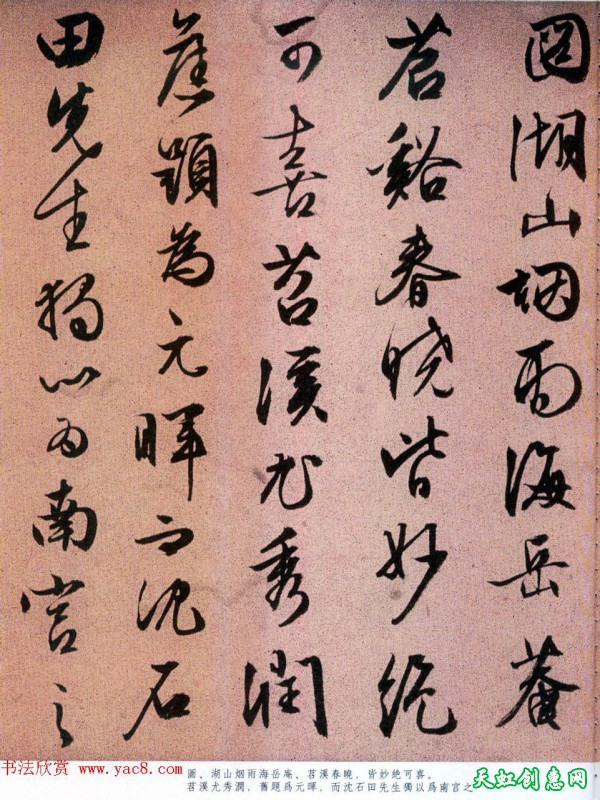 圖湖山烟雨海岳菴
苕谿春曉皆妙絶
可喜苕溪尤秀潤
舊題為元暉而沈石
田先生獨以為南宫之
圖、湖山烟雨海岳庵、苕溪春曉，皆妙絶可喜。
苕溪尤秀潤，舊題爲元暉，而沈石田先生獨以爲南宮之
书法欣赏 www.yac8.com
天虹创意网